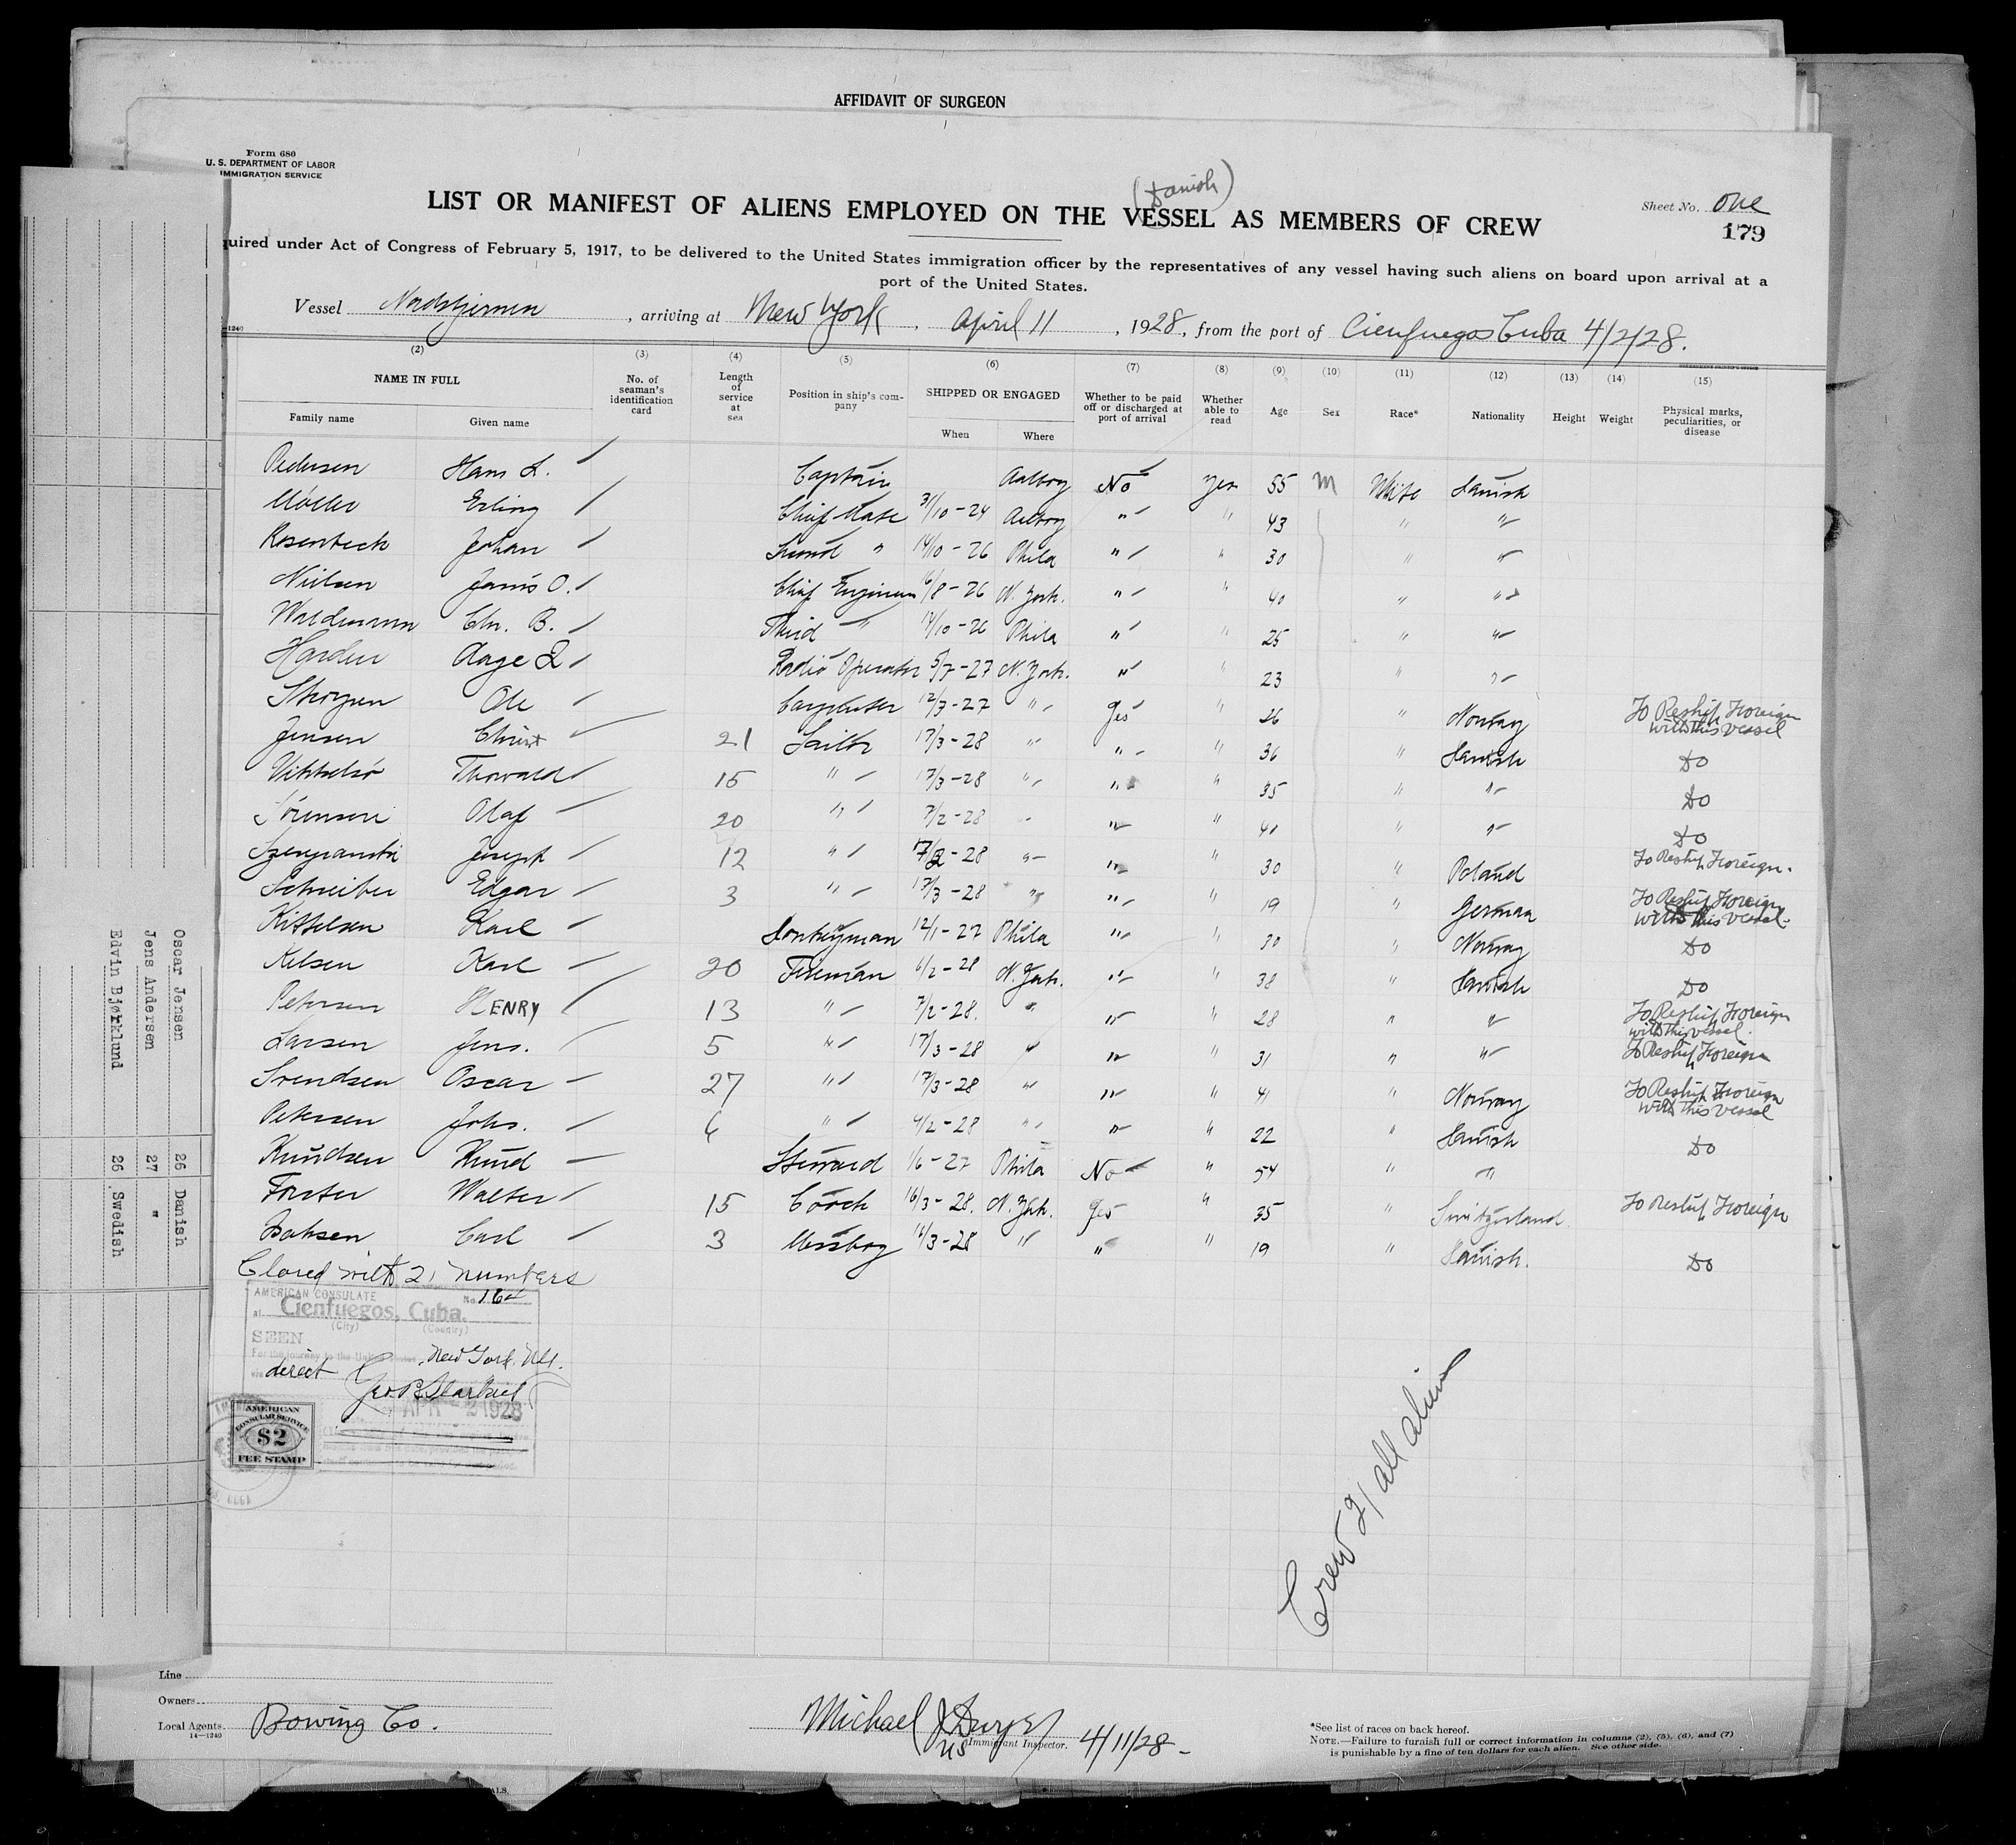 AFFIDAVIT OF SURGEON
Form 680
U. S. DEPARTMENT OF LABOR
IMMIGRATION SERVICE
(Danish)
LIST OR MANIFEST OF ALIENS EMPLOYED ON THE VESSEL AS MEMBERS OF CREW
Sheet No. One
179
quired under Act of Congress of February 5, 1917, to be delivered to the United States immigration officer by the representatives of any vessel having such aliens on board upon arrival at a
port of the United States.
Vessel Nordstjernen, arriving at New York, April 11, 1928, from the port of Cienfuegos Cuba 4/2/28.
(2) (3) (4) (5) (6) (7) (8) (9) (10) (11) (12) (13) (14) (15)
NAME IN FULL No. of seaman's identification card Length of service at sea Position in ship's company SHIPPED OR ENGAGED Whether to be paid off or discharged at port of arrival Whether able to read Age Sex Race* Nationality Height Weight Physical marks, peculiarities, or disease
Family name Given name When Where
Pedersen Hans L. Captain Aalborg No Yes 55 M White Danish
Möller Erling Chief Mate 31/10-24 Aalborg " " 43 " "
Rosenbeck Johan Second " 14/10-26 Phila " " 30 " "
Nielsen Janis O. Chief Engineer 16/8-26 N. York. " " 40 " "
Waldemann Chr. B. Third " 14/10-26 Phila " " 25 " "
Harder Aage L Radio Operator 5/7-27 N. York. " " 23 " "
Ole Carpenter 12/3-27 " Yes " 26 " Norway To Reship Foreign with this vessel
Jensen Christ 21 Sailor 17/3-28 " " " 36 Danish Do
Thorvald 15 " 17/3-28 " " " 35 " " Do
Sörensen Olaf 20 " 7/2-28 " " " 41 " " Do
Szczepanski Joseph 12 " 17/2-28 " " " 30 " Poland To Reship Foreign.
Schreiber Edgar 3 " 17/3-28 " " " 19 " German To Reship Foreign with this vessel.
Kittelsen Karl Donkeyman 12/1-27 Phila " " 30 " Norway Do
Kelsen Karl 20 Fireman 6/2-28 N. York. " " 38 " Danish Do
Petersen HENRY 13 " 7/2-28. " " " 28 " " To Reship Foreign with this vessel.
Larsen Jens. 5 " 17/3-28 " " " 31 " " To Reship Foreign
Svendsen Oscar 27 " 17/3-28 " " " 41 " Norway To Reship Foreign with this vessel
Petersen Johs. 6 " 4/2-28 " " " 22 " Danish Do
Knudsen Knud Steward 1/6-27 Phila No " 54 " "
Forster Walter 15 Coock 16/3-28. N. York. Yes " 35 " Switzerland. To Reship Foreign
Bahsen Carl 3 Messboy 16/3-28 " " " 19 " Danish. Do
Closed with 21 numbers
AMERICAN CONSULATE
No. 164
at Cienfuegos, Cuba.
(City) (Country)
SEEN
For the journey to the United States
New York, N.Y.
via direct
APR - 2 1928
AMERICAN
CONSULAR SERVICE
$2
FEE STAMP
Crew 21 all aliens
Oscar Jensen 26 Danish
Jens Andersen 27 "
Edvin Bjørklund 26 Swedish
Line
Owners
Local Agents Bowring Co.
14-1240
Michael J Dwyer
US Immigrant Inspector. 4/11/28-
*See list of races on back hereof.
NOTE.—Failure to furnish full or correct information in columns (2), (5), (6), and (7)
is punishable by a fine of ten dollars for each alien. See other side.